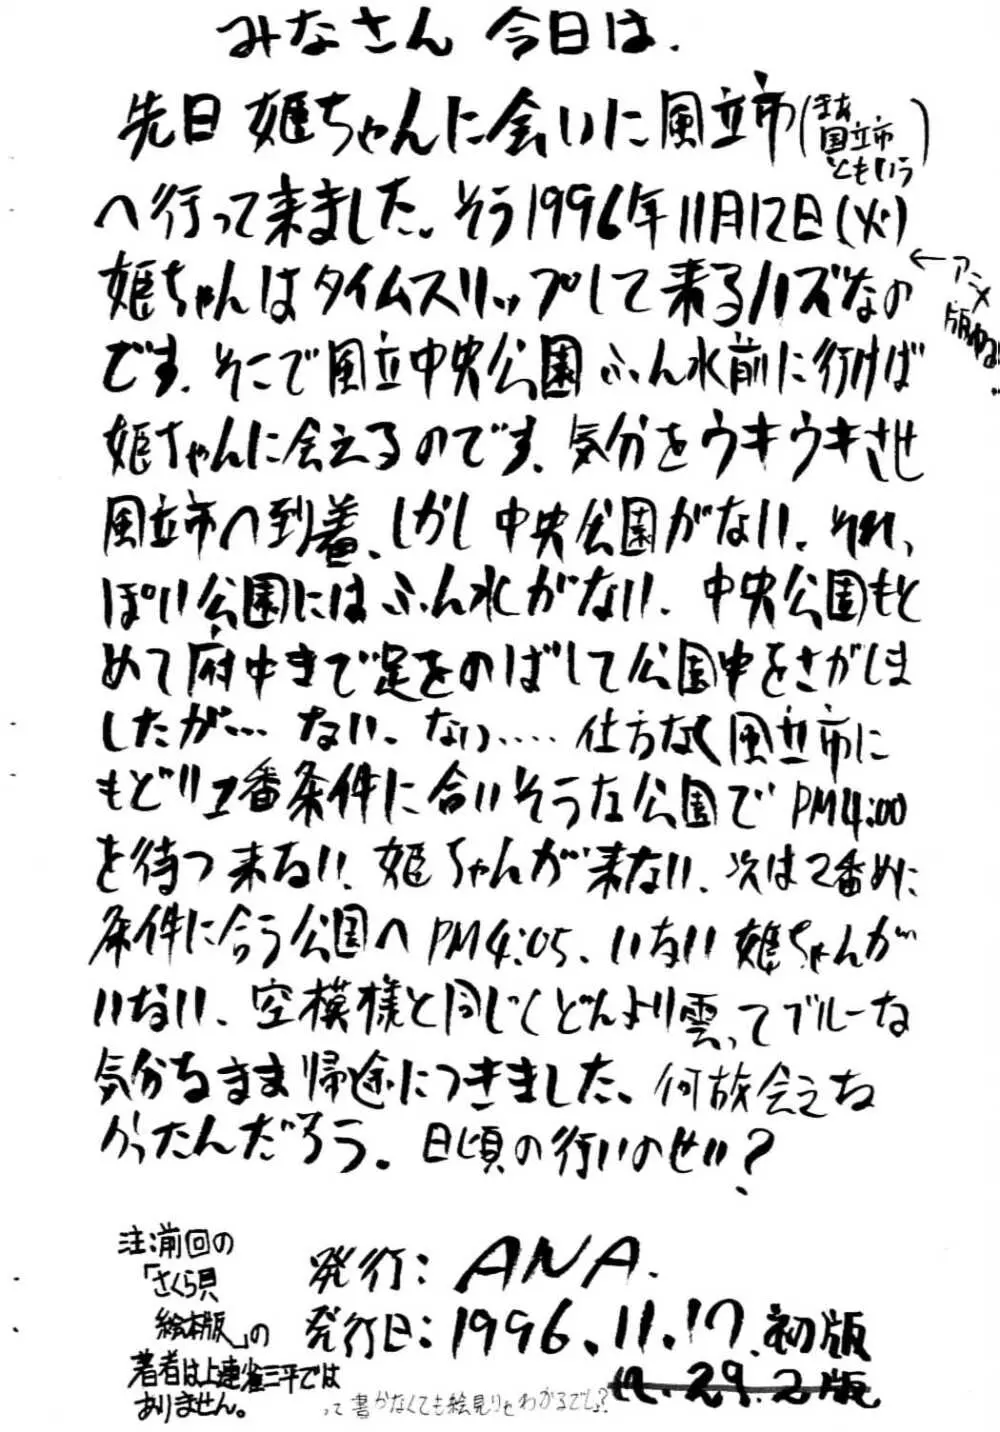 みなさん 今日は.
先日 姫ちゃんに会いに風立市(まあ国立市ともいう)
へ行って来ました。そう1996年11月12日(火)
←アニメ版ゆる!..
姫ちゃんはタイムスリップして来るハズなの
です.そこで風立中央公園ふん水前に行けば
姫ちゃんに会えるのです.気分をウキウキさせ
風立市へ到着、しかし中央公園がない.それ、
ぽい公園にはふん水がない.中央公園もと
めて府中まで足をのばして公園中をさがしま
したが… ない、ない…‥仕方なく風立市に
もどり1番条件に合いそうな公園でPM4:00
を待つ来ない.姫ちゃんが来ない.次は2番めに
条件に合う公園へPM4:05、いない姫ちゃんが
いない、空模様と同じくどんより雲ってブルーな
気分なまま帰途につきました。何故会えな
かったんだろう。日頃の行いのせい?
注:前回の
「さくら貝
絵本版」の
著者は上連雀三平では
ありません。
発行:ANA.
発行日:1996.11.17.初版
12.29.2版
って書かなくても絵見りゃわかるでしょ?